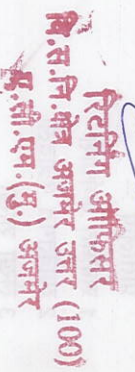 रिटर्निंग ऑफिसर
वि.स.नि.क्षेत्र अजमेर उत्तर (100)
ए.सी.एम.(मु.) अजमेर